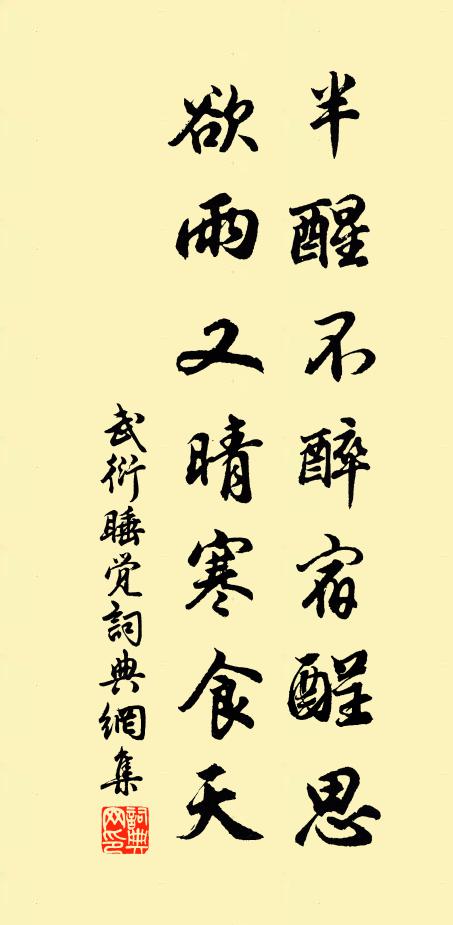 半醒不醉宿酲思
欲雨又晴寒食天
武衍睡觉詞典網集
詞典网印